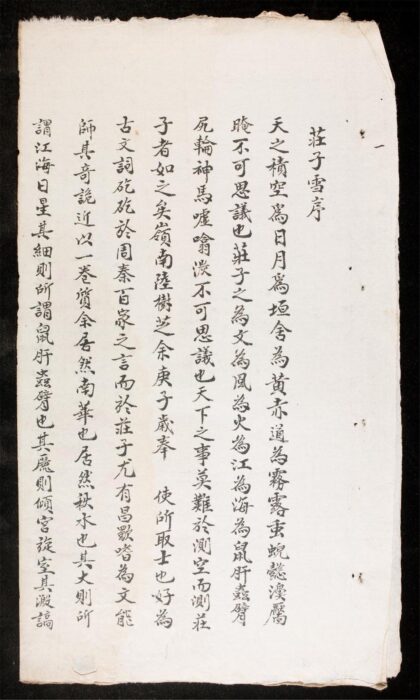 莊子雪序
天之積空爲日月爲垣舍為黄赤道為霧露虫蜺
晻不可思議也莊子之為文為風為火為江為海為鼠肝蟲臂
尻輪神馬嘘噏不可思議也天下之事莫難於測空而測莊
子者如之矣嶺南陸樹芝余庚子歲奉　使所取士也好為
古文詞矻矻於周秦百家之言而於莊子尤有昌歜嗜為文能
師其奇詭近以一卷質余居然南華也居然秋水也其大則所
謂江海日星其細則所謂鼠肝蟲臂也其魔則傾宮旋室其激謞